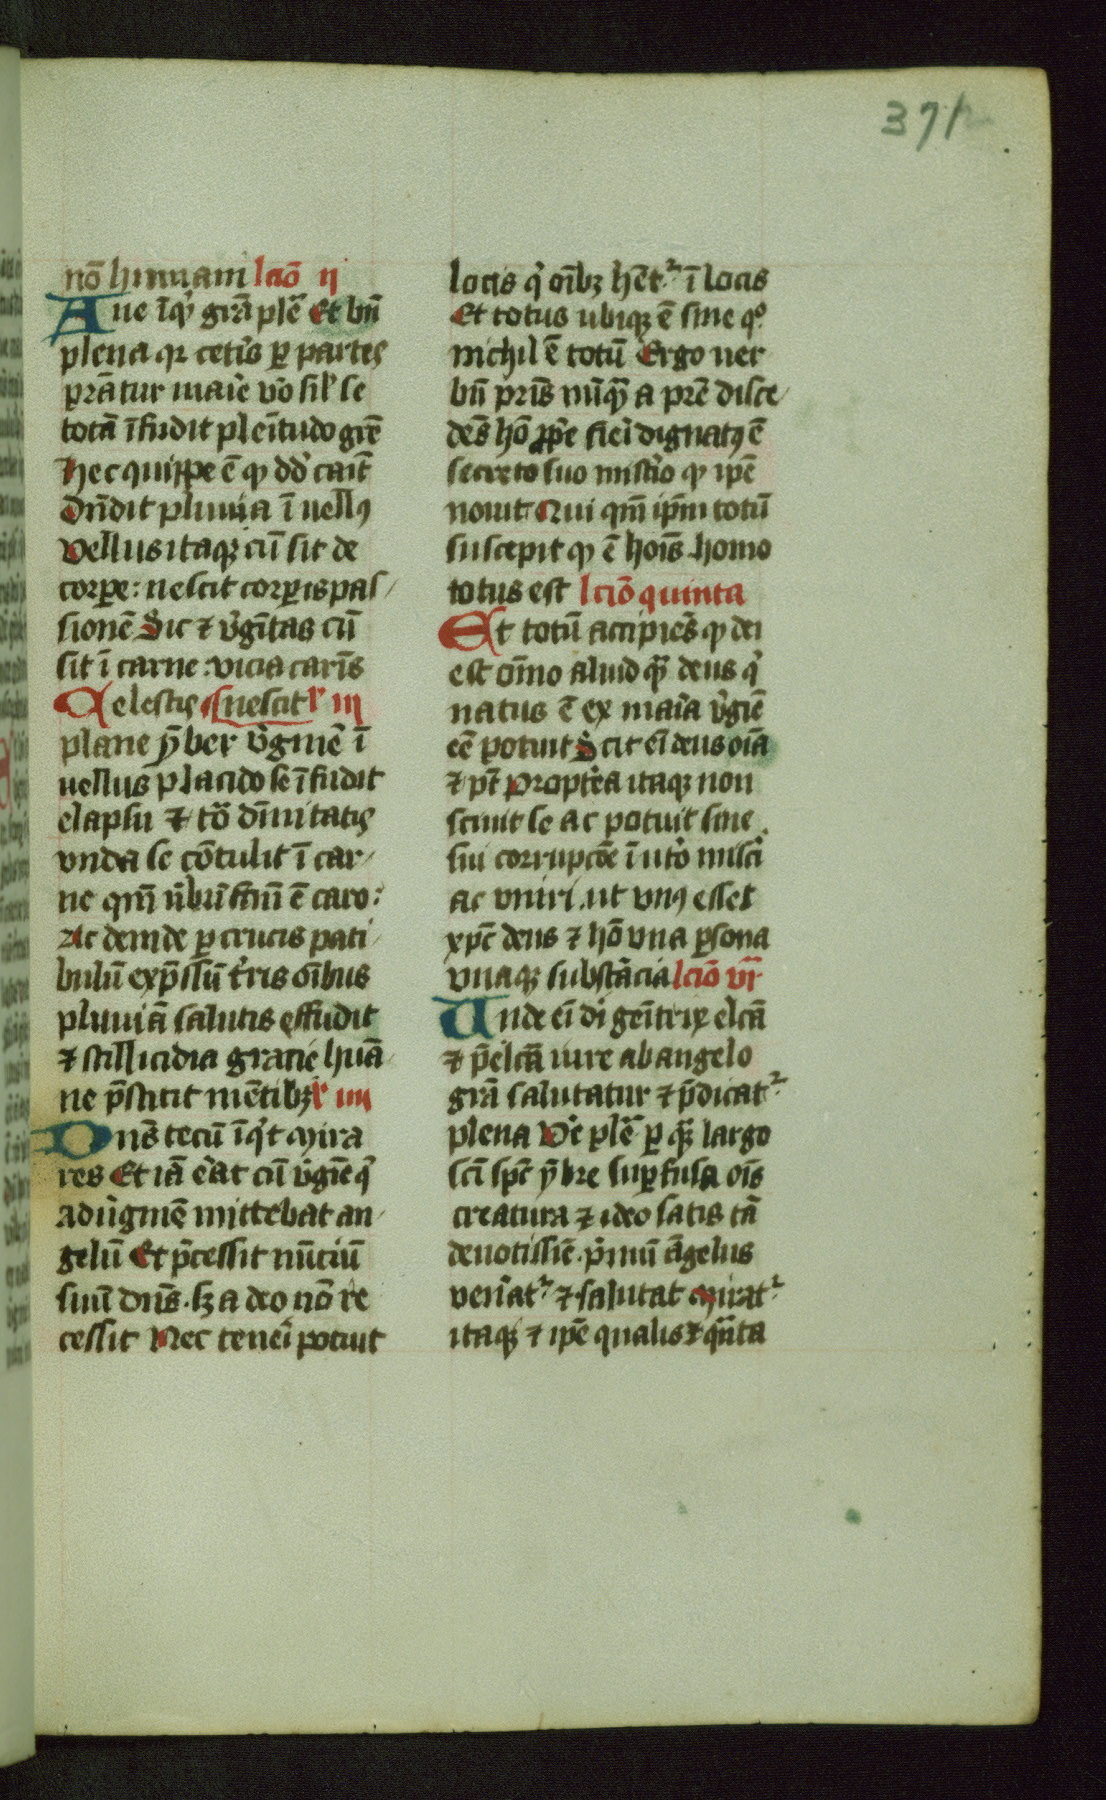 371
nō humanā lcīo ii
Aue īqͥ grā plē Et bn̄
plena qꝛ ceteͥs ꝑ partes
prātur marie vͦo silˀ se
totā īfudit plēitudo grē
Hec quippe ē qͥ dd̄ cāit
Dn̄dit pluuia ī uellꝰ
Vellus itaqꝫ cū sit de
corꝑe: nescit corꝑis pas
sionē Sic ⁊ vͥgītas cū
sit ī carne: vicia carīs
Celestis nescit lˀ iii
plane ẏber vͥginē ī
uellus placido se īfudit
elapsu ⁊ tō diuītatis
vnda se cōtulit ī car
ne qn̄ ūbū fcm̄ ē caro:
Ac deinde ꝑ crucis pati
bulū exp̄ssū tͥris oībus
pluuiā salutis effudit
⁊ stillicidia gracie huā
ne p̄stitit mētibꝫ lˀ iiii
Dn̄s tecū īqͥt Mira
res Et iā erͣt cū vͥgīe qͥ
ad uͥginē mittebat an
gelū Et p̄cessit nūciū
suū dn̄s. sꝫ a deo nō re
cessit Nec teneri potuit
locis qͥ oībꝫ hēt᷑ ī locis
Et totus ubiqꝫ ē sine qͦ
nichil ē totū Ergo ver
bū pris̄ nūqͣ a prē disce
dēs hō ꝓpe fieri dignatꝰ ē
secreto suo mistͥio qͥ ip̄e
nouit Qui qm̄ ip̄m totū
suscepit qͥ ē hoīs homo
totus est lcīo quinta
Et totū accipies qͥ dei
est om̄o aliud qͣ deus qͥ
natus ē ex maria vͥgīe
eē potuit Scit ei deus oīa
⁊ pt̄ Propterea itaqꝫ non
sciuit se ac potuit sine
sui corrupcōe ī utͦo misci
ac vniri. ut vnꝰ esset
xp̄c deus ⁊ hō vna ꝑsona
vnaqꝫ substācia lcīo vi
Unde ei di genitrix elcā
⁊ p̄elcā iure ab angelo
grā salutatur ⁊ p̄dicat᷑
plena Ve plē ꝑ qͣ largo
scī spc̄ ẏbre suꝑfusa oīs
creatura ⁊ ideo satis tā
deuotissīe. p̄mū āgelus
ven̄at᷑ ⁊ salutat Mirat᷑
itaqꝫ ⁊ ip̄e qualis ⁊ qͣnta